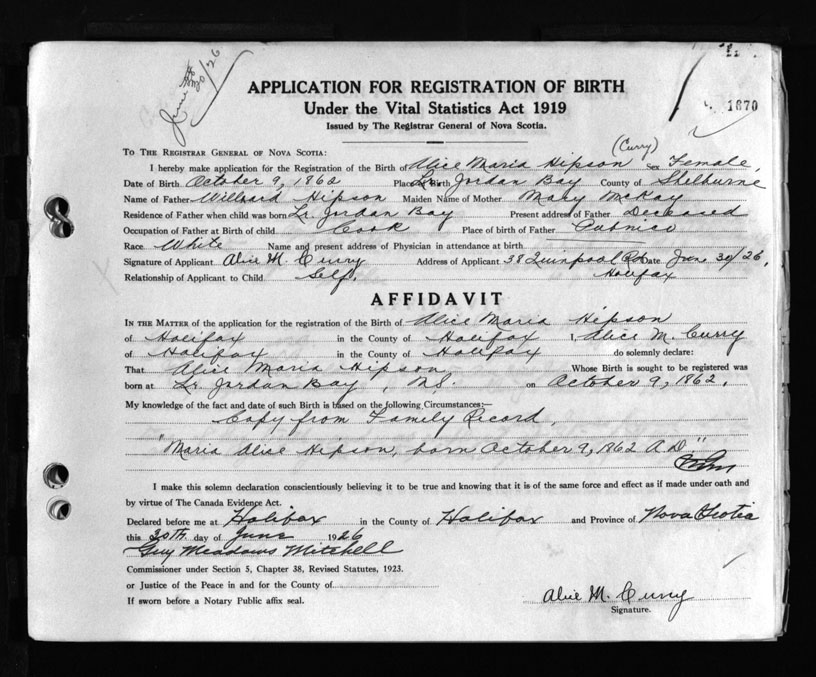 June 30/26
APPLICATION FOR REGISTRATION OF BIRTH
Under the Vital Statistics Act 1919
Issued by The Registrar General of Nova Scotia.
1870
TO THE REGISTRAR GENERAL OF NOVA SCOTIA:
(Curry)
I hereby make application for the Registration of the Birth of Alice Maria Hipson Sex Female,
Date of Birth October 9, 1862 Place of Birth Lr. Jordan Bay County of Shelburne
Name of Father Willard Hipson Maiden Name of Mother Mary McKay
Residence of Father when child was born Lr. Jordan Bay Present address of Father Deceased
Occupation of Father at Birth of child Cook Place of birth of Father Pubnico
Race White Name and present address of Physician in attendance at birth
Signature of Applicant Alice M. Curry Address of Applicant 38 Quinpool Rd Date June 30/26,
Relationship of Applicant to Child Self. Halifax
AFFIDAVIT
IN THE MATTER of the application for the registration of the Birth of Alice Maria Hipson
of Halifax in the County of Halifax I, Alice M. Curry
of Halifax in the County of Halifax do solemnly declare:
That Alice Maria Hipson Whose Birth is sought to be registered was
born at Lr. Jordan Bay, N.S. on October 9, 1862.
My knowledge of the fact and date of such Birth is based on the following Circumstances:—
Copy from Family Record.
"Maria Alice Hipson, born October 9, 1862 A.D."
I make this solemn declaration conscientiously believing it to be true and knowing that it is of the same force and effect as if made under oath and
by virtue of The Canada Evidence Act.
Declared before me at Halifax in the County of Halifax and Province of Nova Scotia
this 30th day of June 1926
Guy Meadows Mitchell
Commissioner under Section 5, Chapter 38, Revised Statutes, 1923.
or Justice of the Peace in and for the County of
If sworn before a Notary Public affix seal.
Alice M. Curry
Signature.